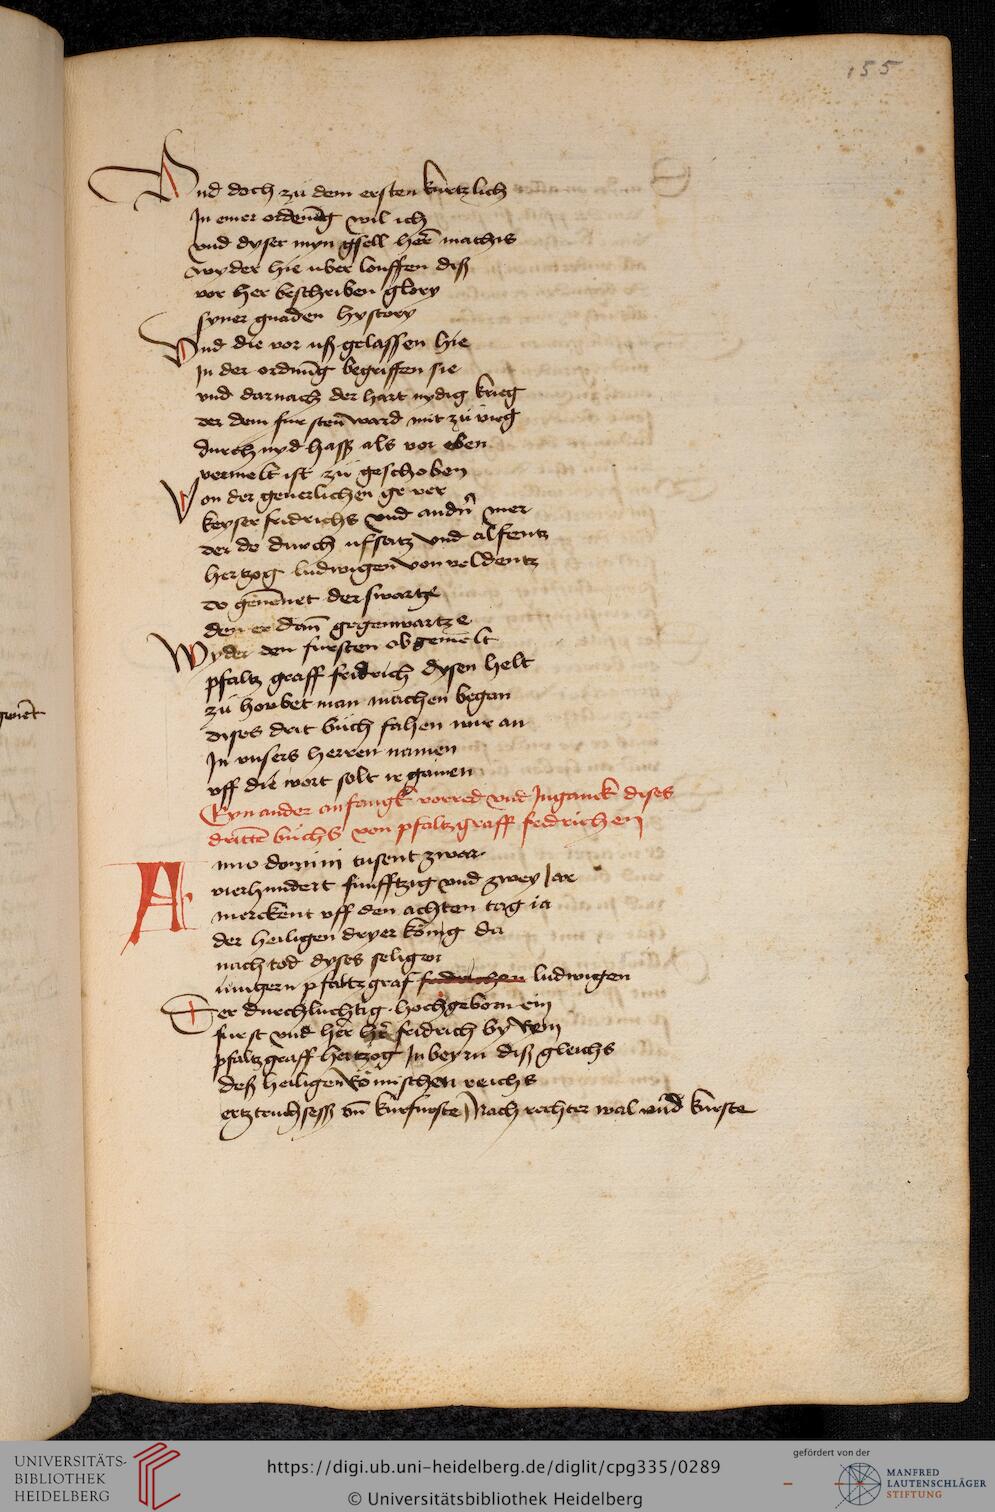 155
Vnd doch zu dem ersten kurtzlich
In einer ordenūg wil ich
vnd dyser myn gsell herr mathis
wyder hie uber louffen diß
vor her beschriben glory
syner gnaden hystory
Vnd die vor uß gelassen hie
In der ordnūg begriffen sie
vnd darnach der hart nydig krieg
der dem fursten ward mit zu
durch nyd haß als vor eben
vermelt ist zu geschoben
Von der geuerlichen gever
keyser fridrichs vnd andn̄ mer
der do durch ufsatz vnd alfentz
hertzog ludwigen von veldentz
do genēnet der swartze
den er dan̄ gegenwartze
Wyder den fursten obgemelt
pfaltz graff fridrich dysen helt
zu houbet man machen began
dises drit buch fahen wir an
In vnsers herren namen
vff die wort solt ir gamen
Eyn ander anfangk vorred vnd Ingank dises
dritten buchs von pfaltzgraff fridrichen
Anno domini tusent zwar
vierhundert funfftzig vnd zwey Jar
merckent vff den achten tag ia
der heiligen dryer konig da
nach tod dyses seligen
iungern pfaltzgraf fridrichen ludwigen
Der durchluchtig hochgeborn ein
furst vnd her her fridrich by Ryn
pfaltzgraff hertzog In beyrn diß gleichs
deß heiligen Romischen reichs
ertztruchseß vn̄ kurfurste Nach rechter wal vnd kurste
genēt
UNIVERSITÄTS-
BIBLIOTHEK
HEIDELBERG
https://digi.ub.uni-heidelberg.de/diglit/cpg335/0289
© Universitätsbibliothek Heidelberg
gefördert von der
MANFRED
LAUTENSCHLÄGER
STIFTUNG